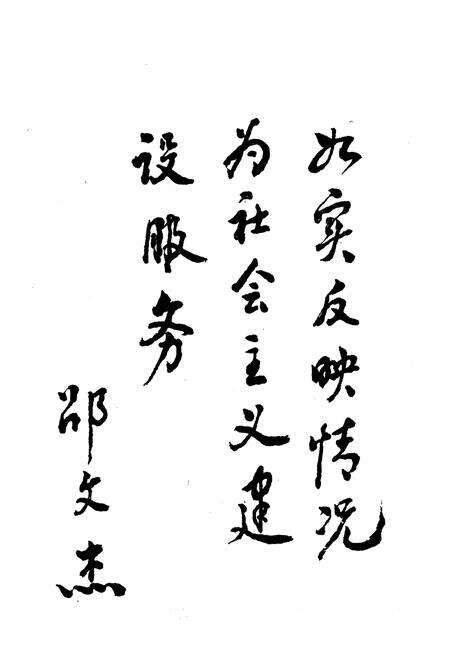 如实反映情况
为社会主义建
设服务
邵文杰